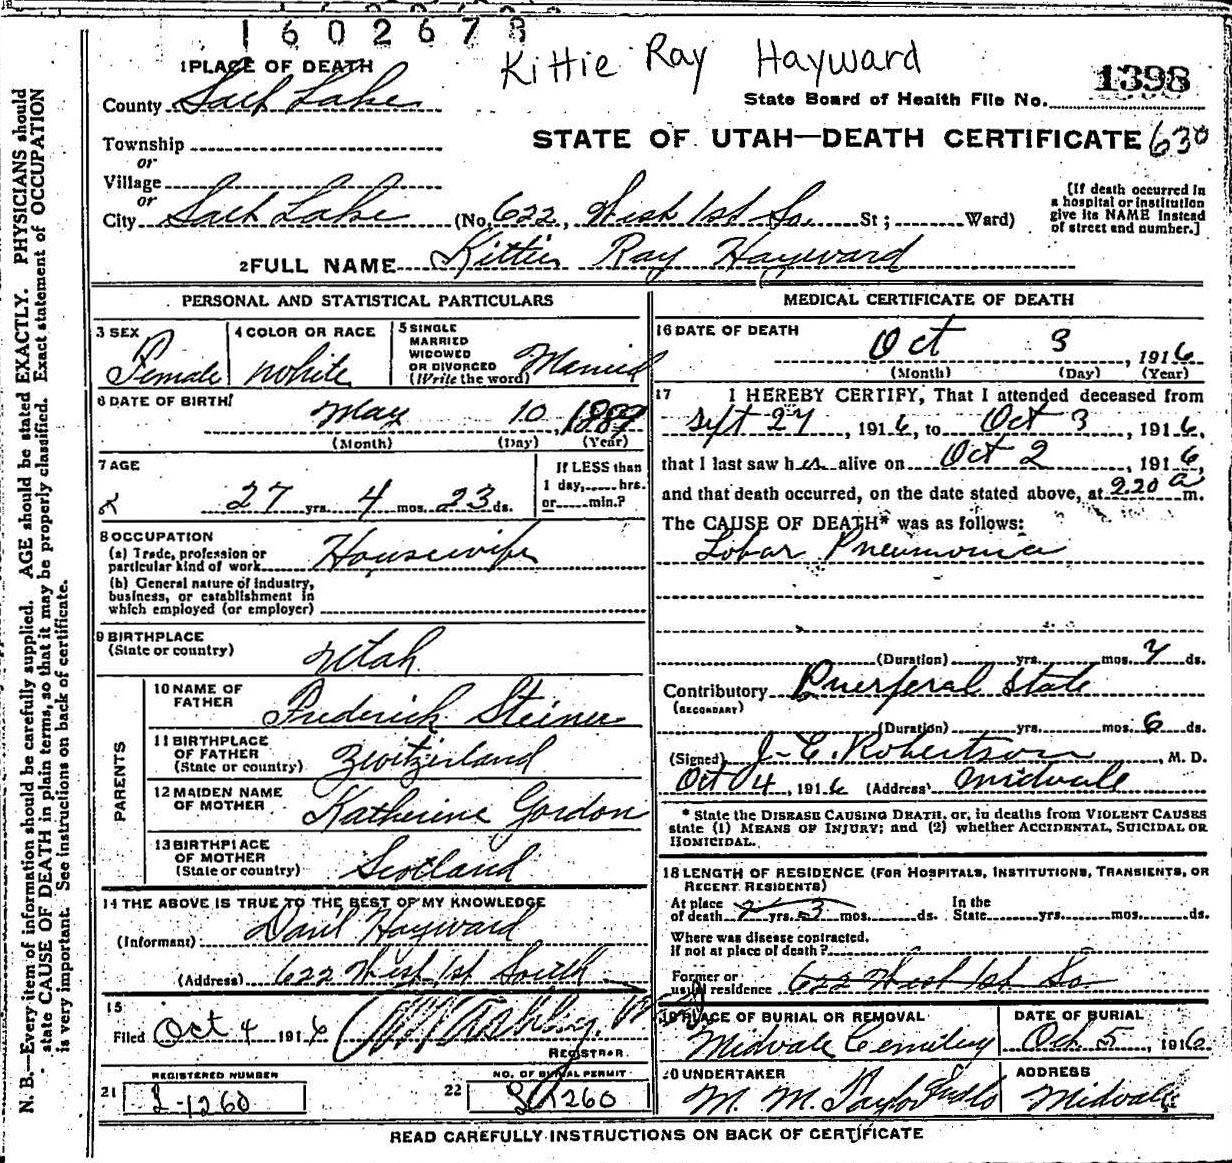 1602678
Kittie Ray Hayward
1398
State Board of Health File No.
STATE OF UTAH—DEATH CERTIFICATE 630
1 PLACE OF DEATH
County Salt Lake
Township
or
Village
or
City Salt Lake (No. 622, West 1st So St; Ward)
[If death occurred in
a hospital or institution
give its NAME instead
of street and number.]
2 FULL NAME Kittie Ray Hayward
PERSONAL AND STATISTICAL PARTICULARS
3 SEX
Female
4 COLOR OR RACE
White
5 SINGLE
MARRIED
WIDOWED
OR DIVORCED
(Write the word) Married
6 DATE OF BIRTH
May 10, 1889
(Month) (Day) (Year)
7 AGE
27 yrs. 4 mos. 23 ds.
If LESS than
1 day, hrs.
or min.?
8 OCCUPATION
(a) Trade, profession or
particular kind of work Housewife
(b) General nature of industry,
business, or establishment in
which employed (or employer)
9 BIRTHPLACE
(State or country) Utah
PARENTS
10 NAME OF
FATHER Frederick Steiner
11 BIRTHPLACE
OF FATHER
(State or country) Zwitzerland
12 MAIDEN NAME
OF MOTHER Katherine Gordon
13 BIRTHPLACE
OF MOTHER
(State or country) Scotland
14 THE ABOVE IS TRUE TO THE BEST OF MY KNOWLEDGE
(Informant) Hayward
(Address) 622 West 1st South
15
Filed Oct 4 1916
REGISTRAR.
REGISTERED NUMBER
21 1260
NO. OF BURIAL PERMIT
22 1260
MEDICAL CERTIFICATE OF DEATH
16 DATE OF DEATH
Oct 3, 1916
(Month) (Day) (Year)
17 I HEREBY CERTIFY, That I attended deceased from
Sept 27, 1916, to Oct 3, 1916,
that I last saw her alive on Oct 2, 1916,
and that death occurred, on the date stated above, at 2.20 a m.
The CAUSE OF DEATH* was as follows:
Lobar Pneumonia
(Duration) yrs. mos. 7 ds.
Contributory Puerferal State
(SECONDARY)
(Duration) yrs. mos. 6 ds.
(Signed) J. E. Robertson, M. D.
Oct 4, 1916 (Address) Midvale
* State the DISEASE CAUSING DEATH, or, in deaths from VIOLENT CAUSES
state (1) MEANS OF INJURY; and (2) whether ACCIDENTAL, SUICIDAL OR
HOMICIDAL.
18 LENGTH OF RESIDENCE (FOR HOSPITALS, INSTITUTIONS, TRANSIENTS, OR
RECENT RESIDENTS)
At place
of death yrs. 3 mos. ds.
In the
State yrs. mos. ds.
Where was disease contracted,
If not at place of death?
Former or
usual residence 622 West 1st So
19 PLACE OF BURIAL OR REMOVAL
Midvale Cemetery
DATE OF BURIAL
Oct 5, 1916
20 UNDERTAKER
M. M. Taylor
ADDRESS
Midvale
READ CAREFULLY INSTRUCTIONS ON BACK OF CERTIFICATE
N. B.—Every item of information should be carefully supplied. AGE should be stated EXACTLY. PHYSICIANS should
state CAUSE OF DEATH in plain terms, so that it may be properly classified. Exact statement of OCCUPATION
is very important. See instructions on back of certificate.